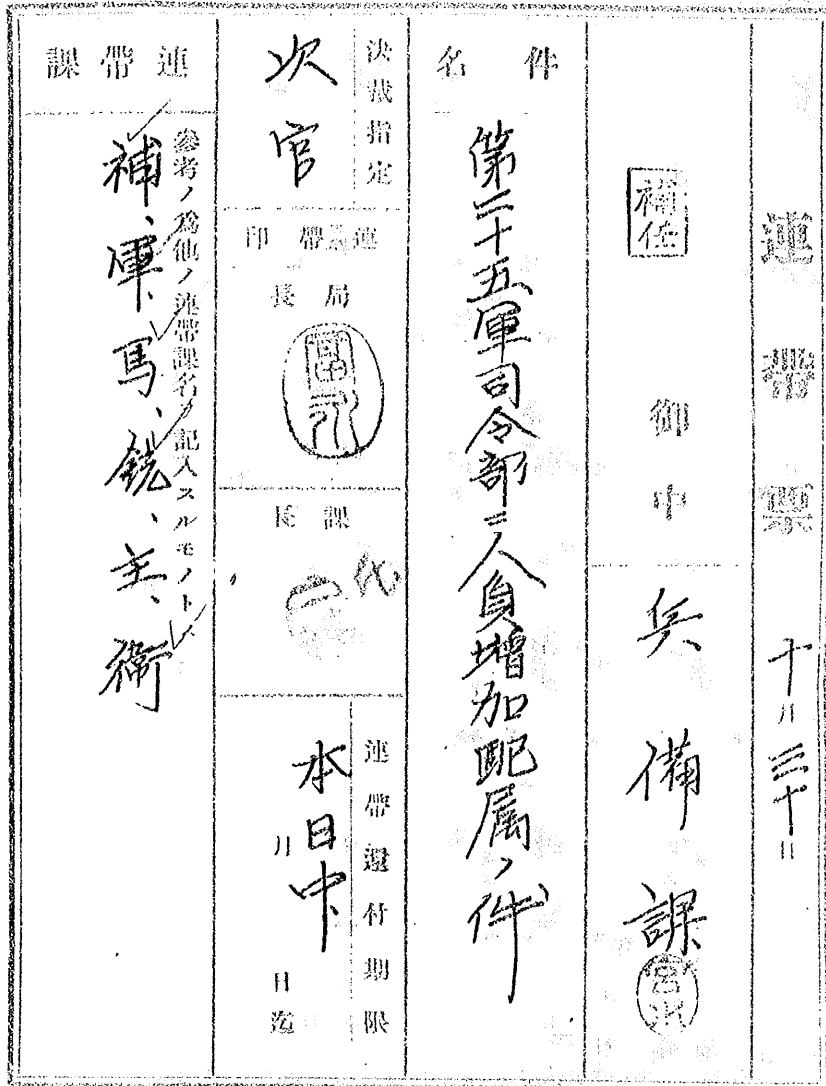 連帶票
十月三十日
補任 御中
兵備課
宮川
件名
第二十五軍司令部ニ人員増加配属ノ件
決裁指定
次官
連帶印
局長
富永
課長
代
連帶還付期限
本日中
月 日迄
連帶課
參考ノ爲他ノ連帶課名ヲ記入スルモノトス
補、軍、馬、銃、主、衛